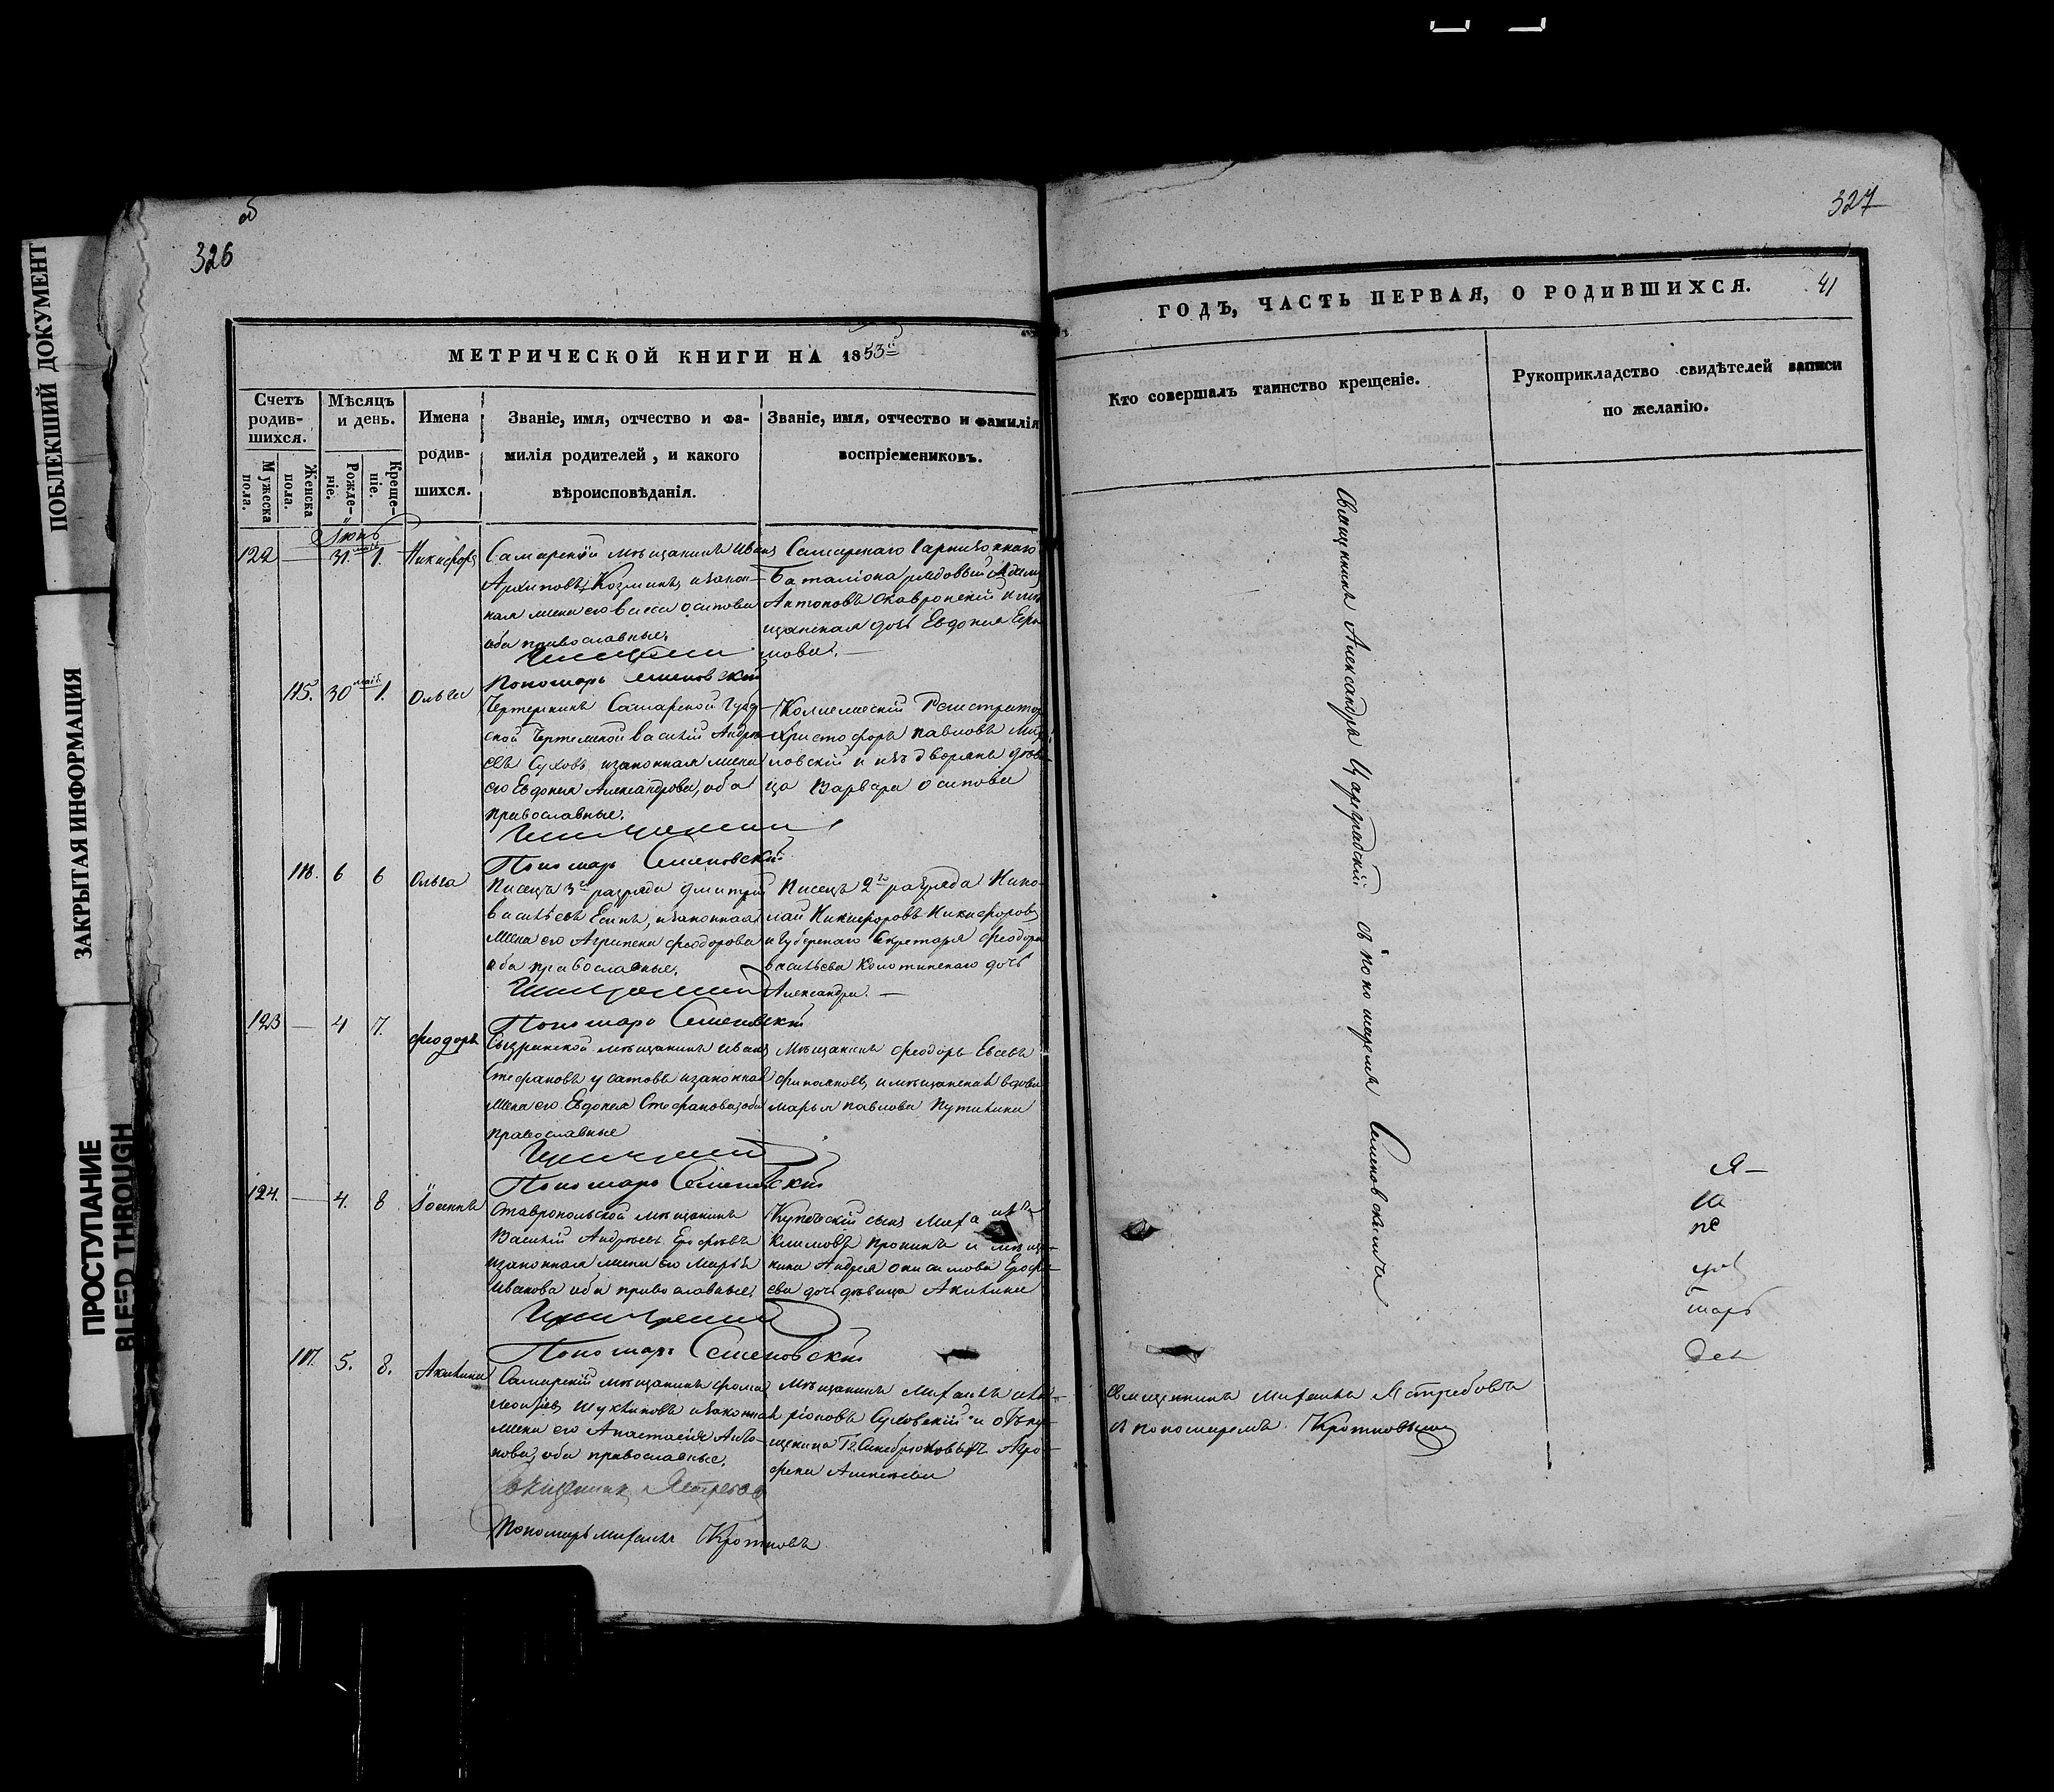 ПОБЛЕКШИЙ ДОКУМЕНТ
ЗАКРЫТАЯ ИНФОРМАЦИЯ
ПРОСТУПАНИЕ
BLEED THROUGH
об
326
МЕТРИЧЕСКОЙ КНИГИ НА 1853й
Счетъ родив-шихся.
Мужеска пола.
Женска пола.
Мѣсяцъ и день.
Рожде-ніе.
Креще-ніе.
Имена родив-шихся.
Званіе, имя, отчество и фа-
милія родителей, и какого
вѣроисповѣданія.
Званіе, имя, отчество и фамилія
воспріемениковъ.
Іюнь
122 — 31. маія 1. Никифоръ
Самарскій мѣщанинъ Иванъ
Архиповъ Козминъ, и закон-
ная жена его Васса Осипова
оба православные.
Самарскаго Гарнизоннаго
Баталіона рядовый
Антоновъ Скавронскій и мѣ-
щанская дочь Евдокия
мова. —
Пономарь Семеновскій
115. 30 маія 1. Ольга
Чертежникъ Самарской Губерн-
ской Чертежной Василій Андре-
евъ Суховъ, и законная жена
его Евдокия Александрова, оба
православные.
Коллежскій Регистраторъ
Христофоръ Павловъ
ловскій и изъ дворянъ дѣви-
ца Варвара Осипова
Пономарь Семеновскій
116. 6 6 Ольга
Писецъ 3го разряда Дмитрій
Васильевъ Есинъ, и законная
жена его Агрипена Феодорова
оба православные.
Писецъ 2го разряда Нико-
лай Никифоровъ Никифоровъ
и Губернскаго Секретаря Феодора
Васильева дочь
Александра. —
Пономарь Семеновскій
123 — 4 7. Феодоръ
Сызранской мѣщанинъ Иванъ
Стефановъ Усатовъ и законная
жена его Евдокея Стефанова, оба
православные
Мѣщанинъ Феодоръ Евсевъ
и мѣщанская вдова
Марья Павлова Путилина
Пономарь Семеновскій
124. — 4. 8 Іоаннъ
Ставропольской мѣщанинъ
Василій Андреевъ Ерофѣевъ
и законная жена его Марья
Иванова оба православные.
Купеческій сынъ Михаилъ
Климовъ Пронинъ и мѣща-
нина Андрея Онисимова Ерофе-
ева дочь дѣвица Акилина
Пономарь Семеновскій
117. 5. 8. Акилина
Самарскій мѣщанинъ Фома
и законная
жена его Анастасія Анто-
нова, оба православные.
Мѣщанинъ Михаилъ
Суловскій и
Агро-
фена Алексѣева
Священникъ Ястребовъ
Пономарь Михаилъ Кротковъ
327
41
ГОДЪ, ЧАСТЬ ПЕРВАЯ, О РОДИВШИХСЯ.
Кто совершалъ таинство крещеніе.
Рукоприкладство свидѣтелей записи
по желанію.
Священникъ Александръ Цареградскій съ пономаремъ Семеновскимъ
Священникъ Михаилъ Ястребовъ
съ пономаремъ Кротковымъ